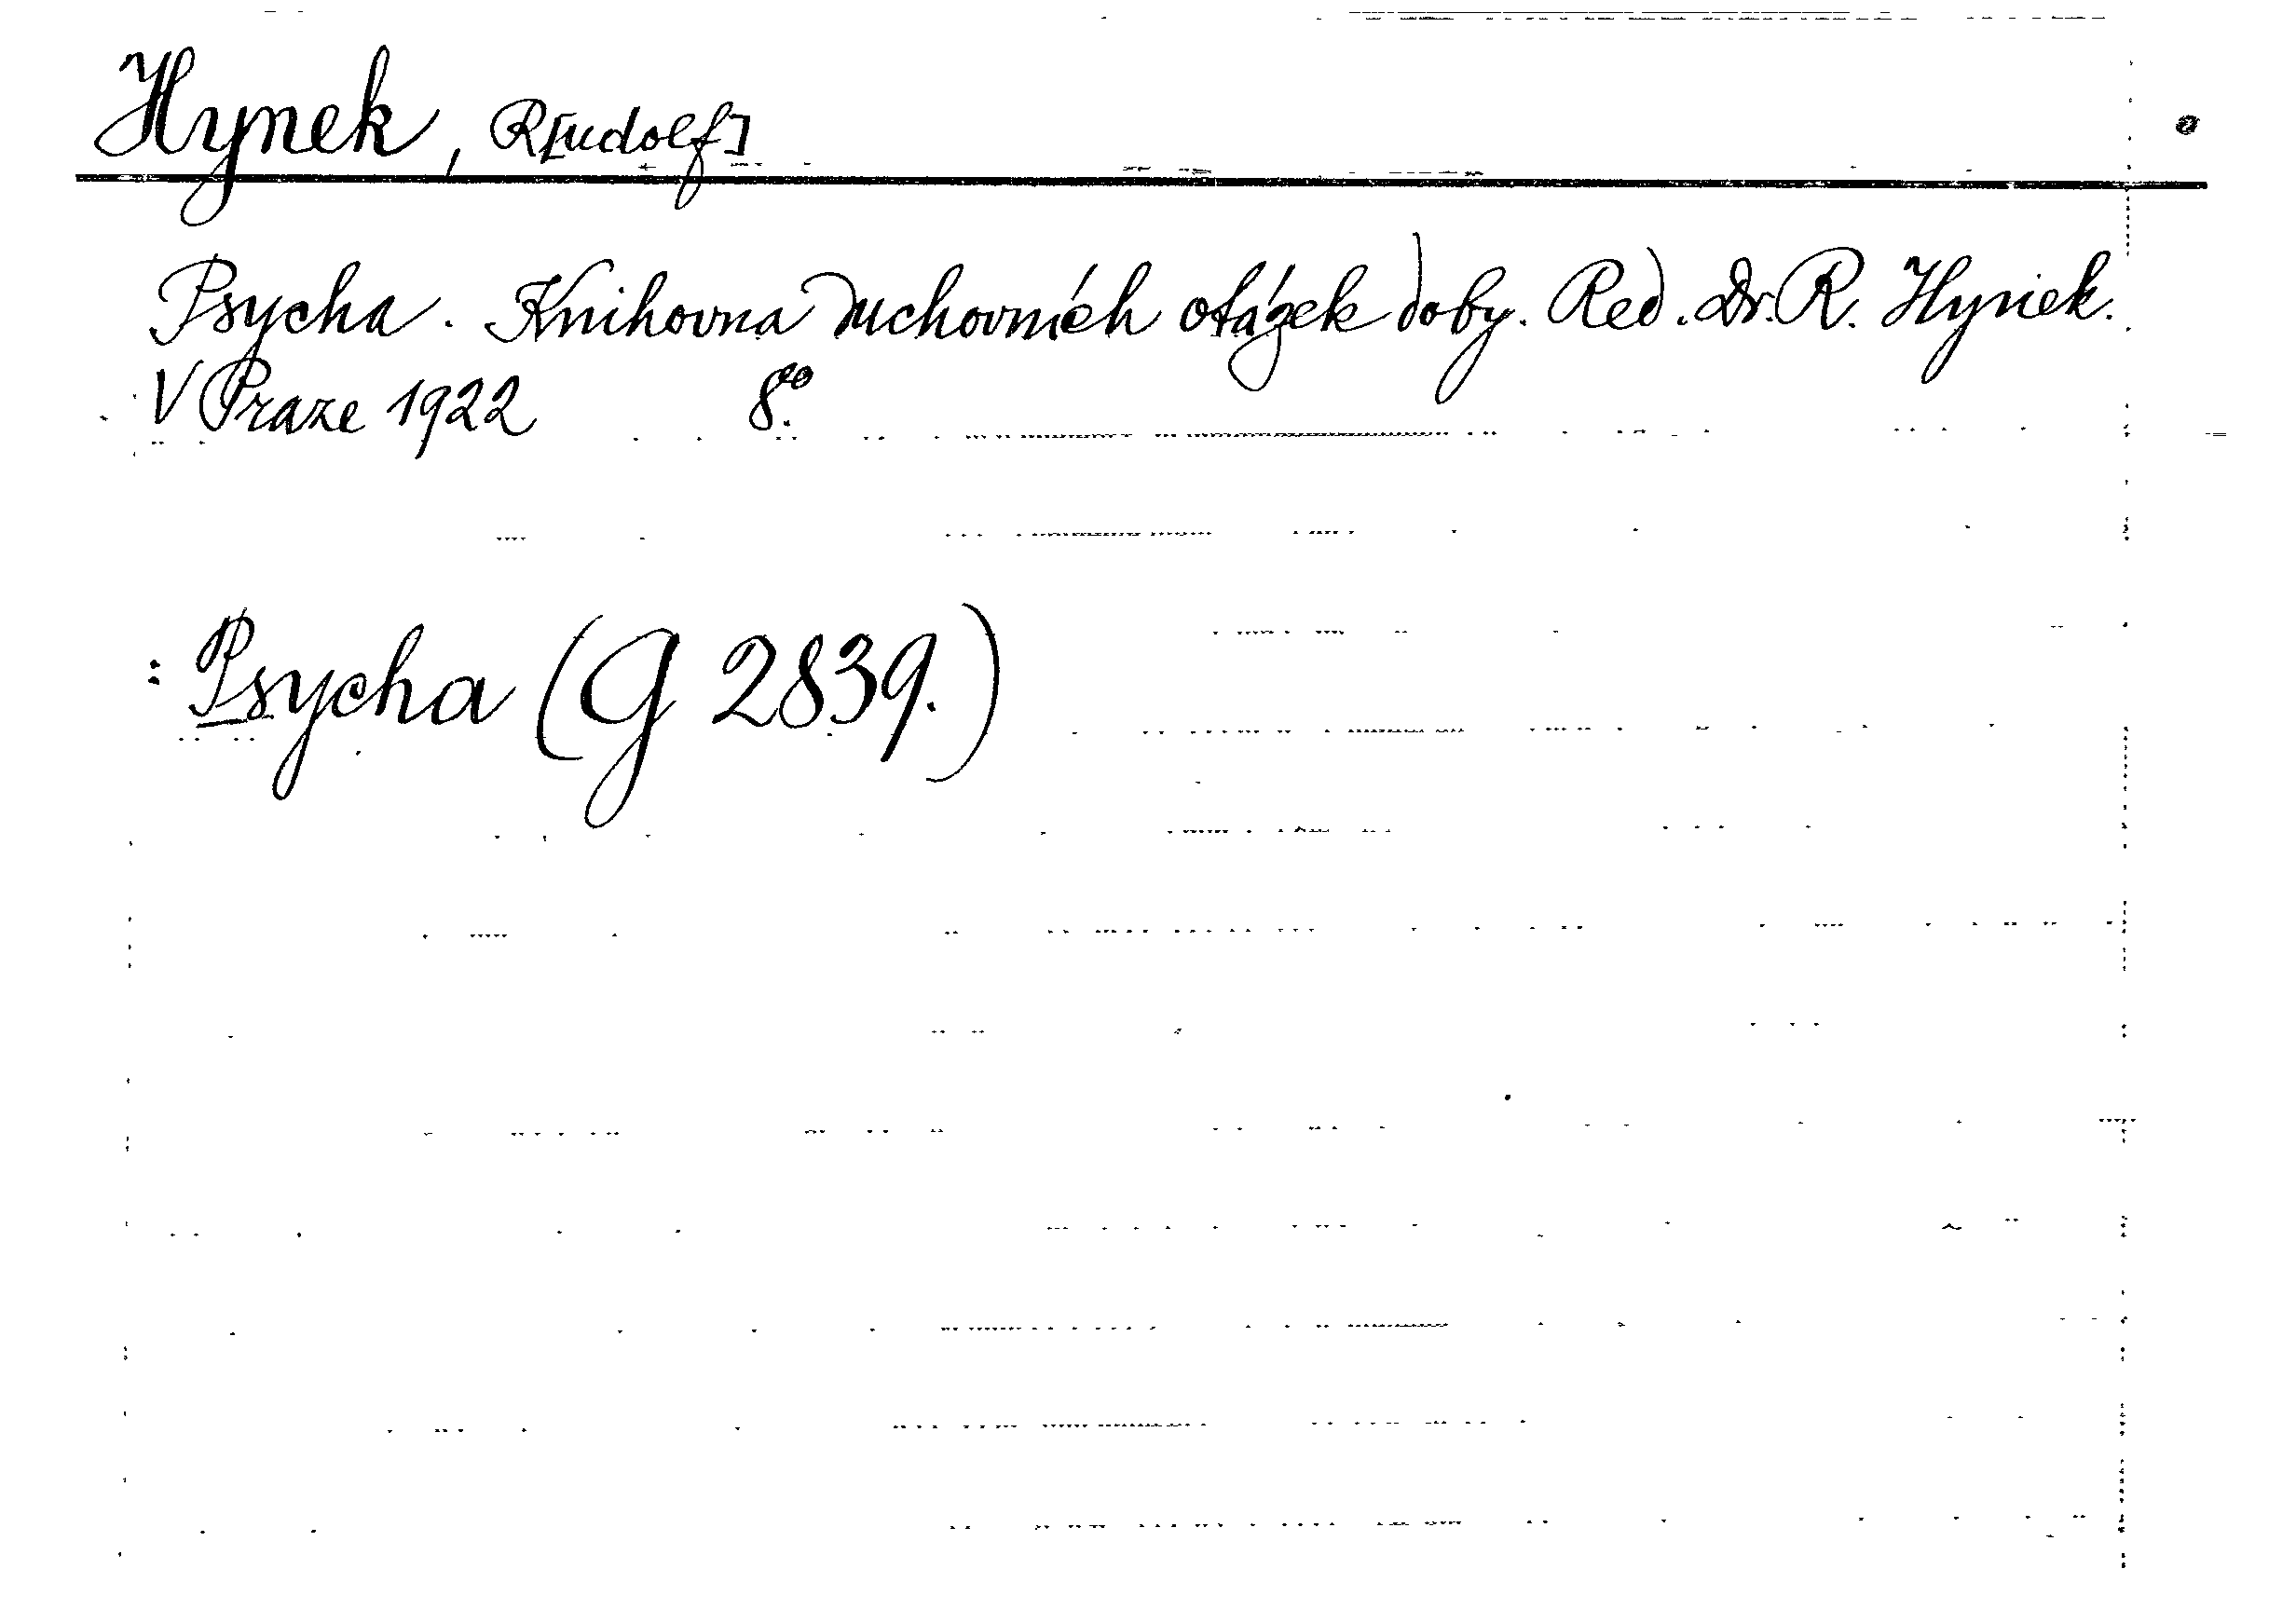 Hynek, R[udolf]
Psycha. Knihovna duchovních otázek doby. Red. Dr. R. Hynek.
V Praze 1922 8º.
: Psycha (G 2839.)